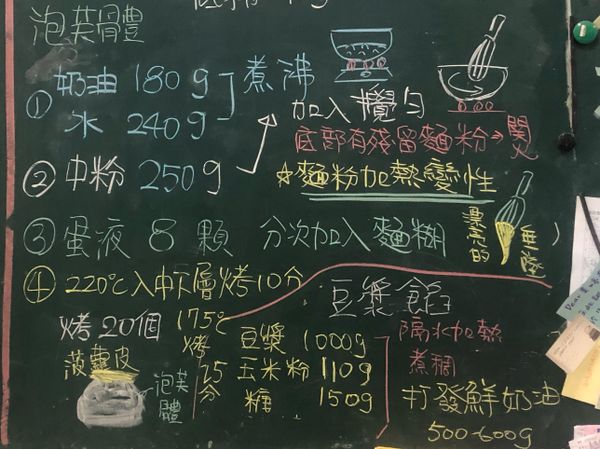 泡芙骨體
① 奶油 180g
水 240g 煮沸
② 中粉 250g
加入攪勻
底部有殘留麵粉→關火
☆麵粉加熱變性
③ 蛋液 8 顆 分次加入麵糊
漂亮的
④ 220℃入中下層烤10分
175℃烤25分
烤20個
菠蘿皮
泡芙體
豆漿餡
豆漿 1000g
玉米粉 110g
糖 150g
隔水加熱
煮稠
打發鮮奶油
500-600g